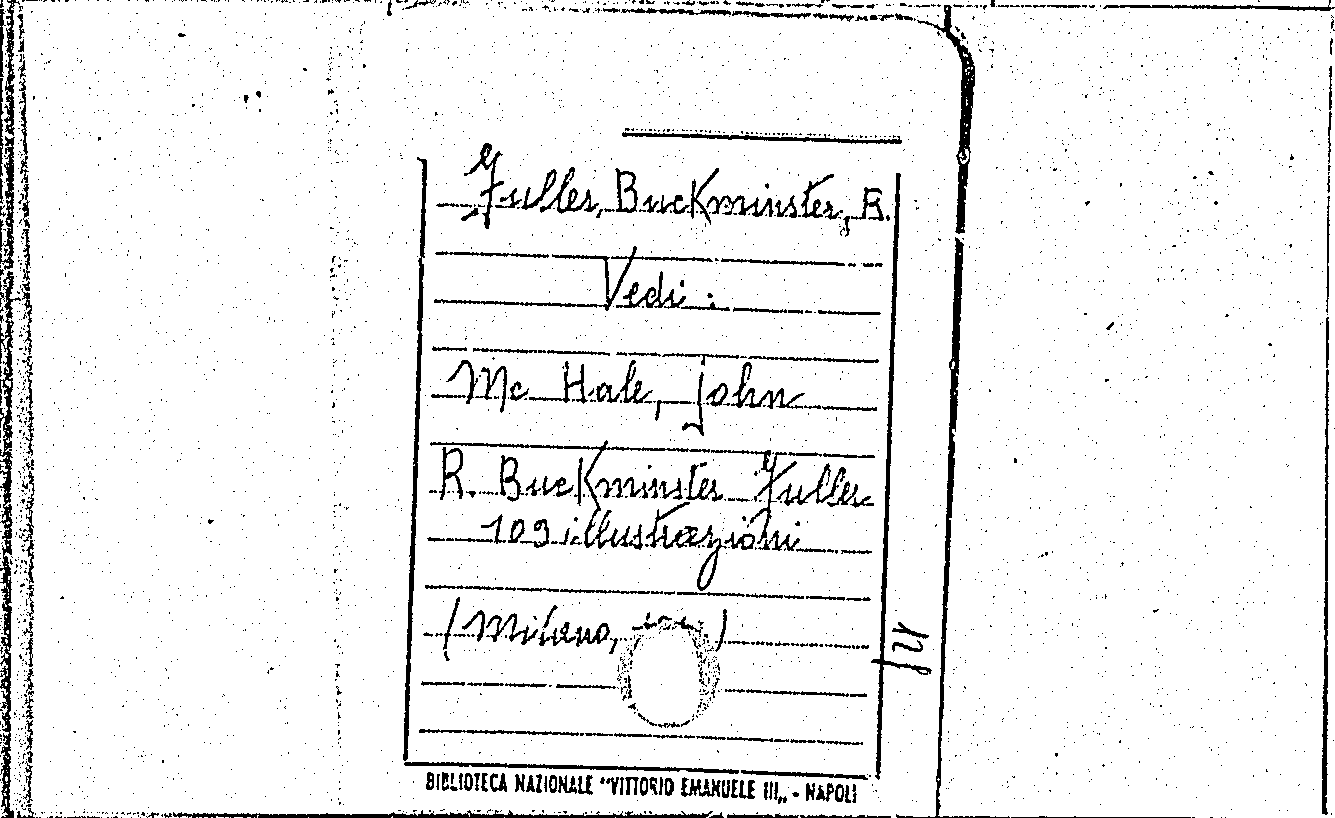 Fuller, Buckminster, R.
Vedi:
Mc Hale, john
R. Buckminster Fuller
109 illustrazioni
(Milano, )
BIBLIOTECA NAZIONALE "VITTORIO EMANUELE III„ - NAPOLI